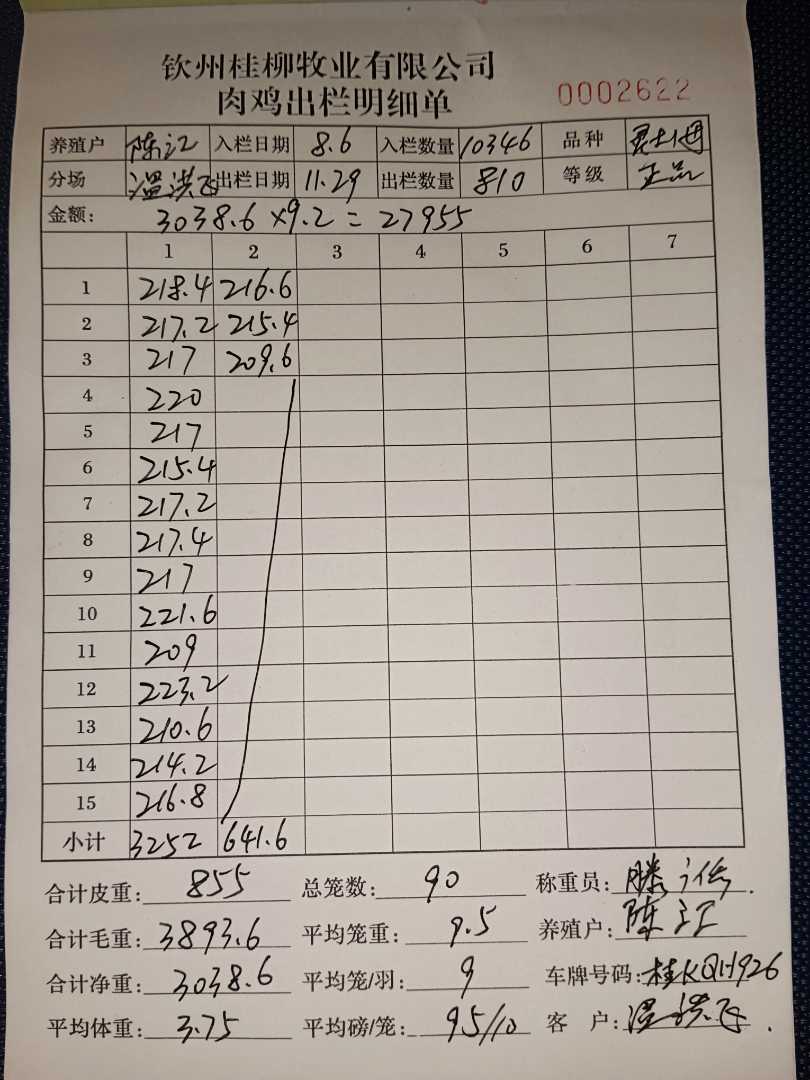 钦州桂柳牧业有限公司
肉鸡出栏明细单 0002622
养殖户 陈江 入栏日期 8.6 入栏数量 10346 品种
分场 温洪飞 出栏日期 11.29 出栏数量 810 等级 正品
金额: 3038.6×9.2=27955
1 2 3 4 5 6 7
1 218.4 216.6
2 217.2 215.4
3 217 209.6
4 220
5 217
6 215.4
7 217.2
8 217.4
9 217
10 221.6
11 209
12 223.2
13 210.6
14 214.2
15 216.8
小计 3252 641.6
合计皮重: 855 总笼数: 90 称重员: 滕
合计毛重: 3893.6 平均笼重: 9.5 养殖户: 陈江
合计净重: 3038.6 平均笼/羽: 9 车牌号码: 桂KQH926
平均体重: 3.75 平均磅/笼: 95/10 客户: 温洪飞